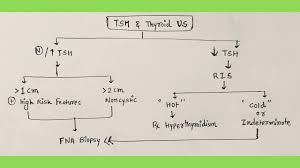 TSH & Thyroid US
(N)/↑ TSH
↓ TSH
R.I.S
>1cm
+ High Risk Features
>2cm
Noncystic
"Hot"
Rx Hyperthyroidism
"Cold"
or
Indeterminate
FNA Biopsy